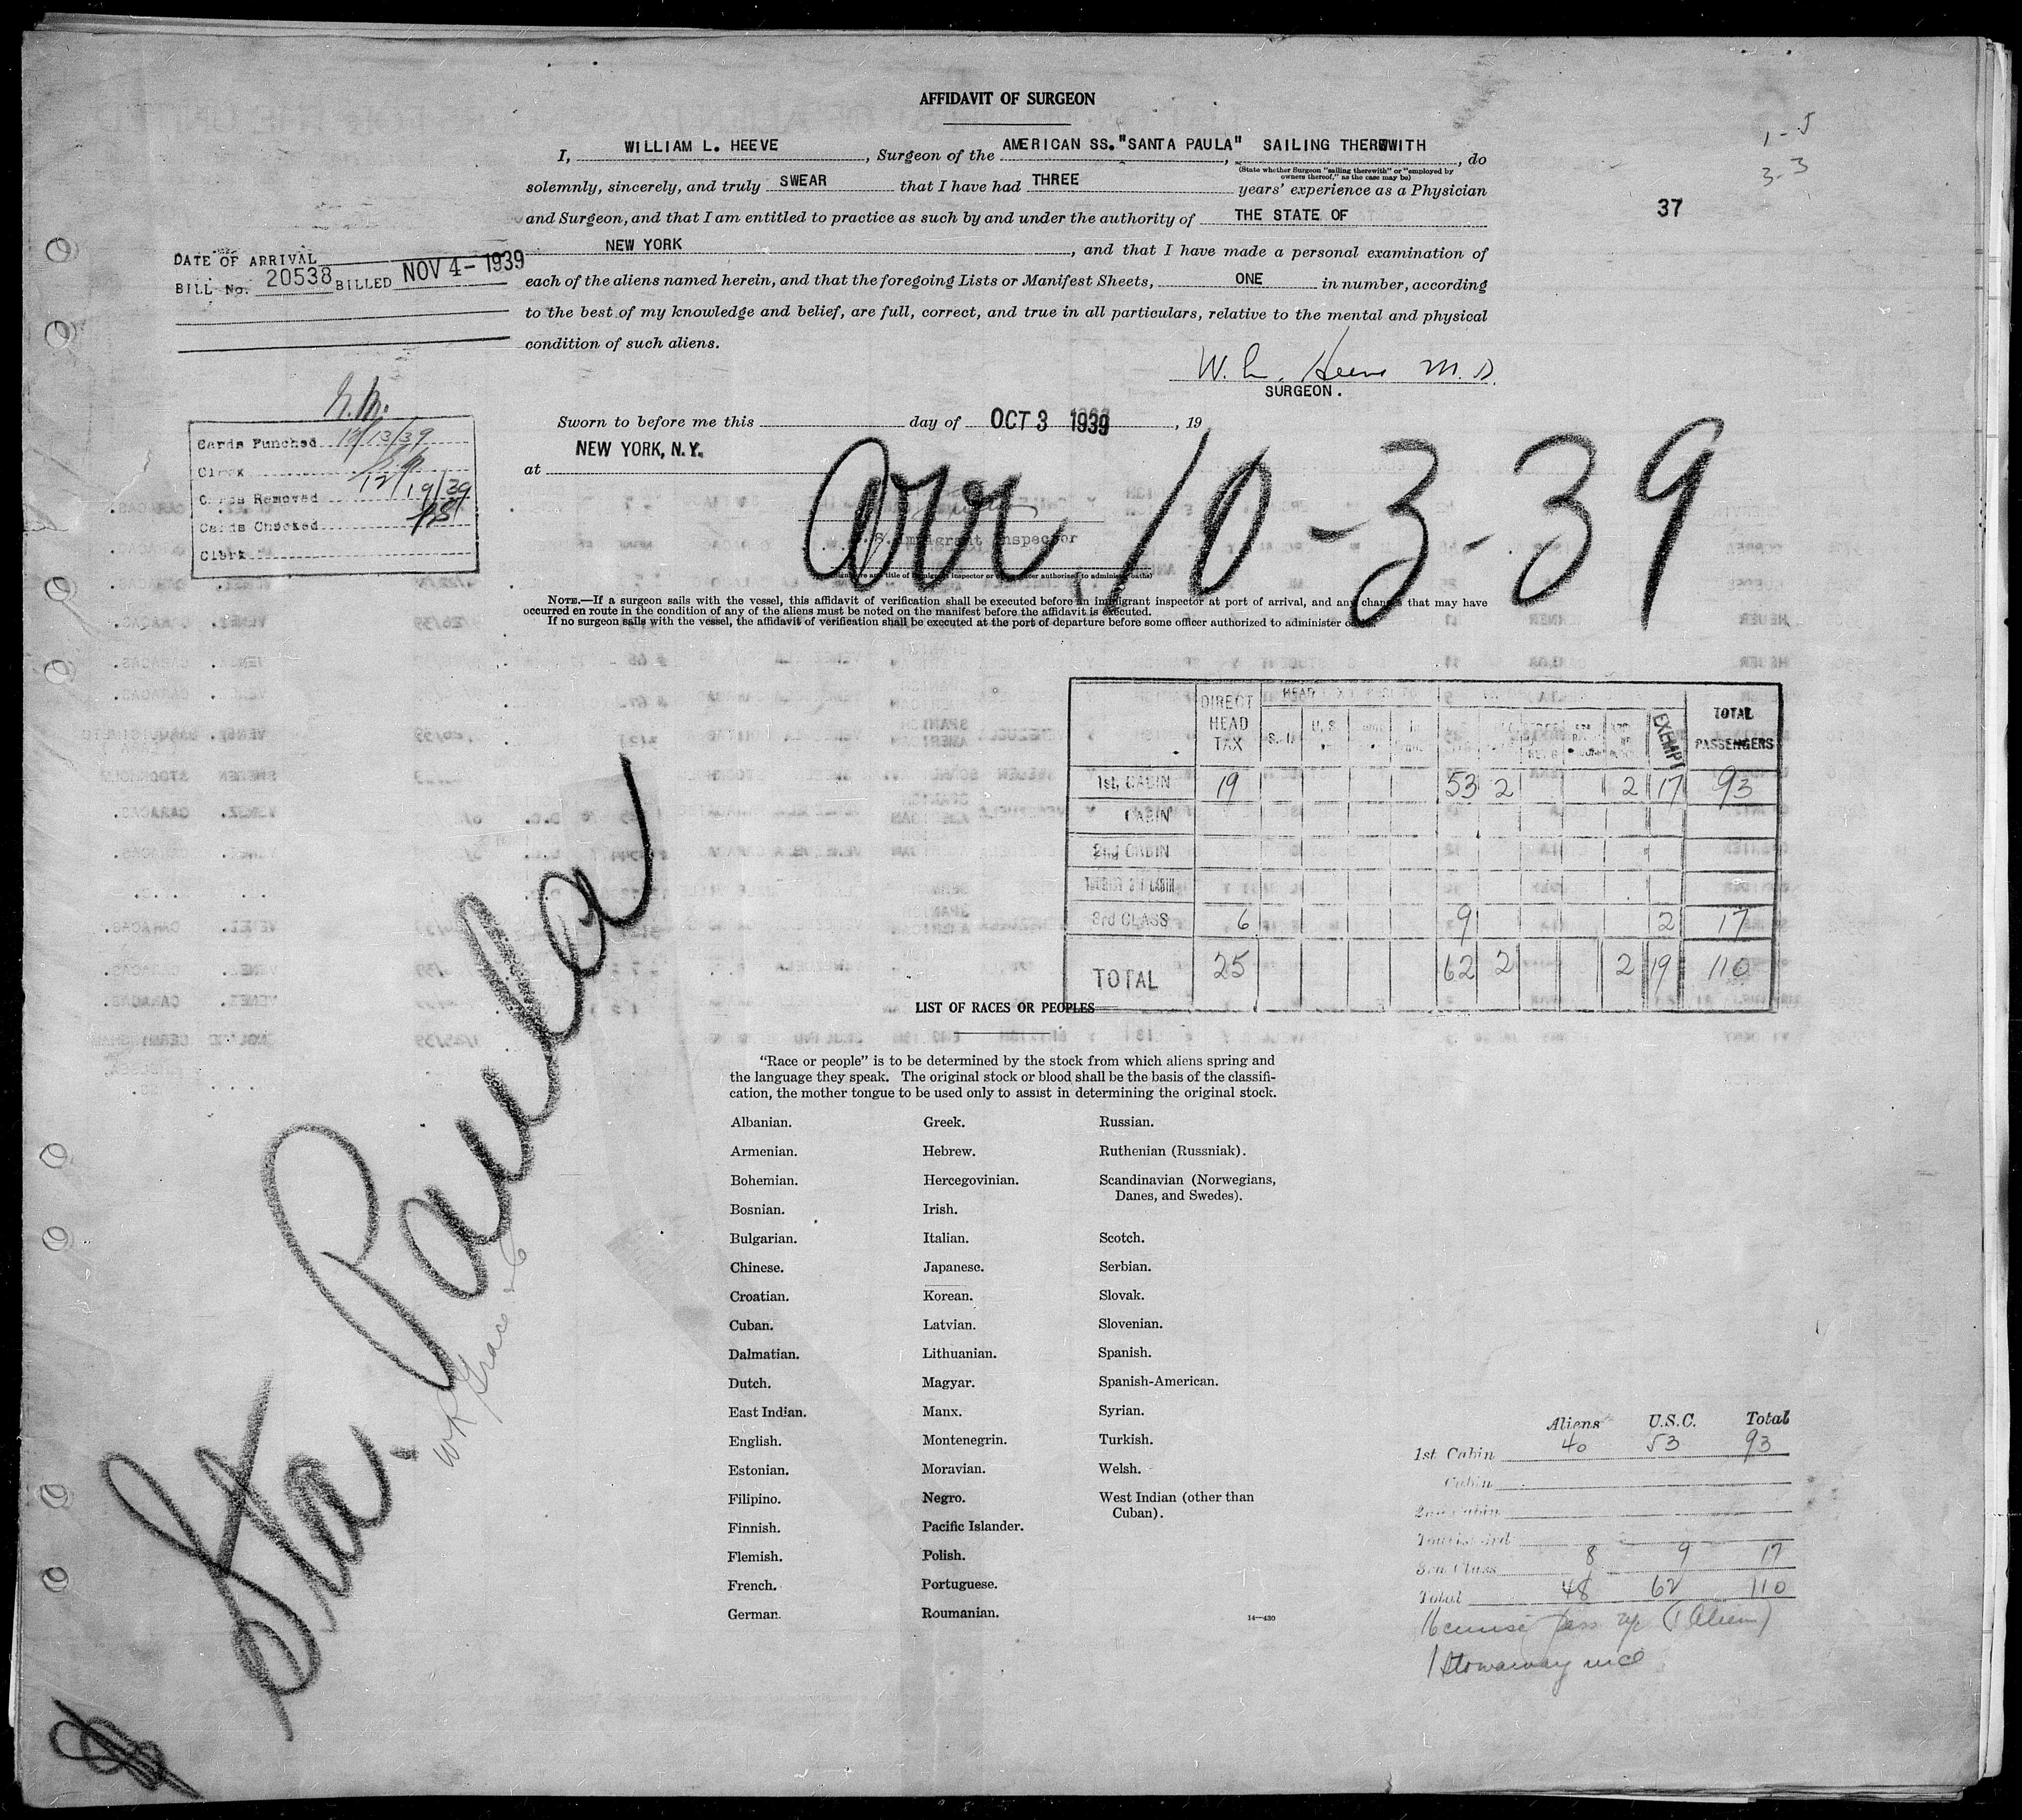 AFFIDAVIT OF SURGEON
I, WILLIAM L. HEEVE, Surgeon of the AMERICAN SS. "SANTA PAULA", SAILING THEREWITH, do
(State whether Surgeon "sailing therewith" or "employed by owners thereof," as the case may be)
solemnly, sincerely, and truly SWEAR that I have had THREE years' experience as a Physician
and Surgeon, and that I am entitled to practice as such by and under the authority of THE STATE OF
NEW YORK, and that I have made a personal examination of
each of the aliens named herein, and that the foregoing Lists or Manifest Sheets, ONE in number, according
to the best of my knowledge and belief, are full, correct, and true in all particulars, relative to the mental and physical
condition of such aliens.
1-5
3-3
37
DATE OF ARRIVAL
BILL No. 20538 BILLED NOV 4-1939
W. L. Heeve M.D.
SURGEON.
Cards Punched 12/13/39
Clerk
Cards Removed 12/19/39
Cards Checked
Clerk
Sworn to before me this day of OCT 3 1939, 19
at NEW YORK, N.Y.
Arr 10-3-39
Immigrant Inspector
NOTE.—If a surgeon sails with the vessel, this affidavit of verification shall be executed before an immigrant inspector at port of arrival, and any changes that may have
occurred en route in the condition of any of the aliens must be noted on the manifest before the affidavit is executed.
If no surgeon sails with the vessel, the affidavit of verification shall be executed at the port of departure before some officer authorized to administer oaths.
DIRECT HEAD TAX EXEMPT TOTAL PASSENGERS
1st, CABIN 19 53 2 2 17 93
CABIN
2nd CABIN
TOURIST 3rd CABIN
3rd CLASS 6 9 2 17
TOTAL 25 62 2 2 19 110
Sta. Paula
W R Grace & Co
LIST OF RACES OR PEOPLES
"Race or people" is to be determined by the stock from which aliens spring and
the language they speak. The original stock or blood shall be the basis of the classifi-
cation, the mother tongue to be used only to assist in determining the original stock.
Albanian. Greek. Russian.
Armenian. Hebrew. Ruthenian (Russniak).
Bohemian. Hercegovinian. Scandinavian (Norwegians,
Danes, and Swedes).
Bosnian. Irish.
Bulgarian. Italian. Scotch.
Chinese. Japanese. Serbian.
Croatian. Korean. Slovak.
Cuban. Latvian. Slovenian.
Dalmatian. Lithuanian. Spanish.
Dutch. Magyar. Spanish-American.
East Indian. Manx. Syrian.
English. Montenegrin. Turkish.
Estonian. Moravian. Welsh.
Filipino. Negro. West Indian (other than
Cuban).
Finnish. Pacific Islander.
Flemish. Polish.
French. Portuguese.
German. Roumanian.
14—430
Aliens U.S.C. Total
1st Cabin 40 53 93
Cabin
2nd Cabin
Tourist 3rd
3rd Class 8 9 17
Total 48 62 110
16 cruise pass up (1 Alien)
1 Stowaway